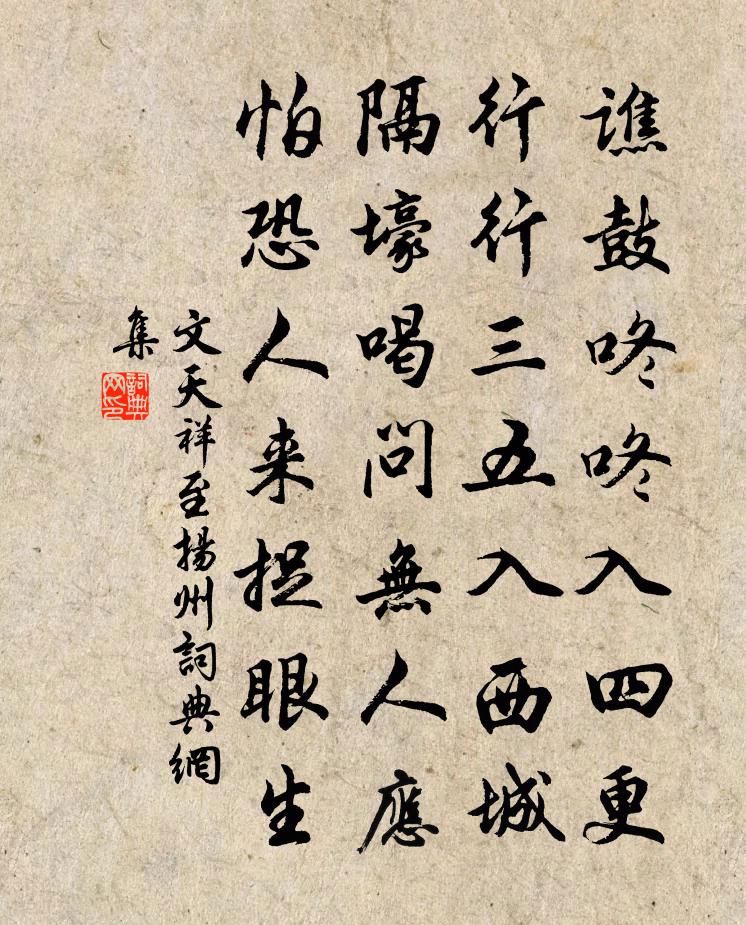 譙鼓咚咚入四更
行行三五入西城
隔壕喝問無人應
怕恐人来捉眼生
文天祥至揚州詞典網
集
詞典
网印